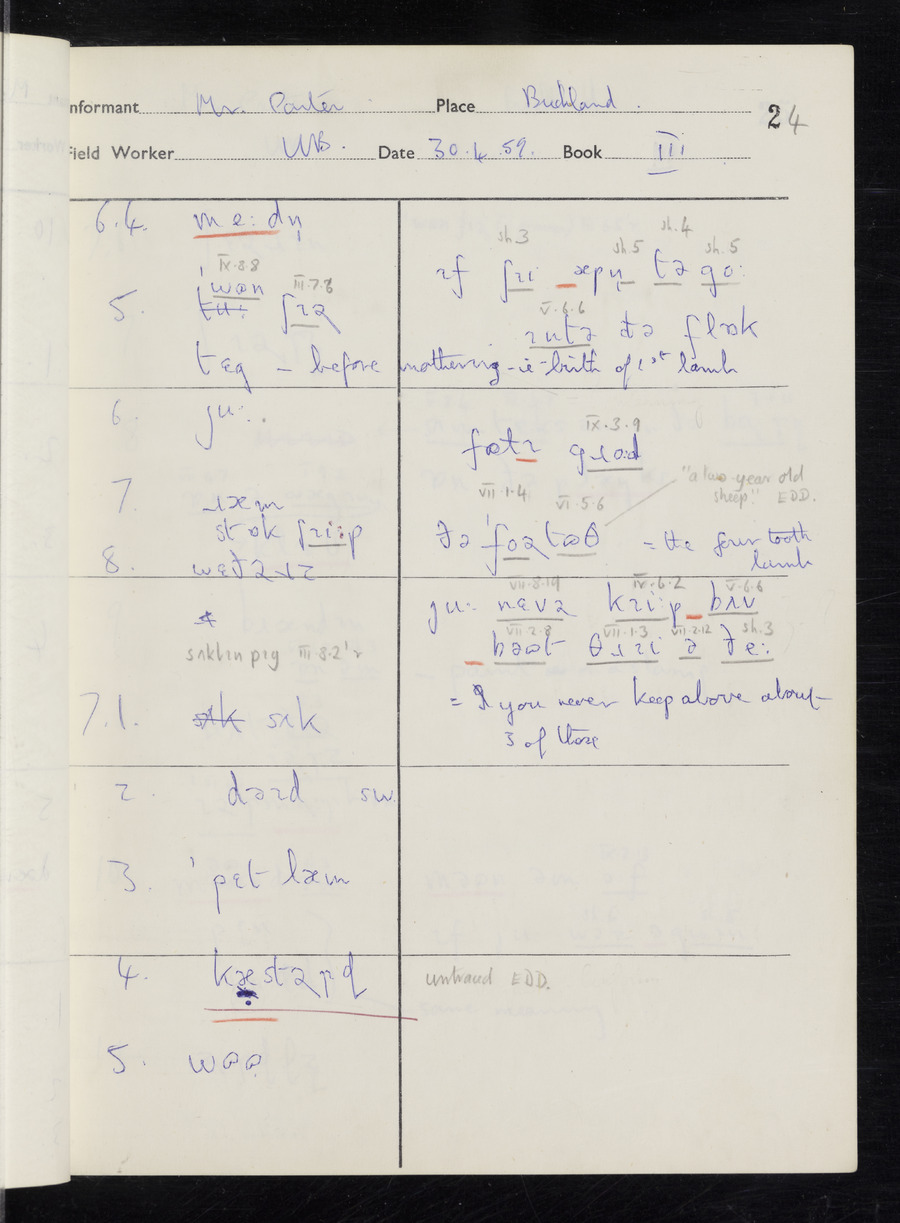 Informant Mr. Porter Place Buckland . 24
Field Worker WB. Date 30.4.59. Book III
6.4. me:dn̩
sh.3 sh.5 sh.4 sh.5
ɪf ʃɪi æpn̩ tə go:
IX.8.8
wan III.7.8
5. ʃɪə
V.6.6
ɪntə ðə flɒk
tɛg – before mothering – ie – birth of 1st lamb
6. ju:
IX.3.9
7. ɹæm
VII.1.4 VI.5.6
"a two-year old
sheep" EDD.
stɒk ʃɪi:p
ðə 'foətəθ = the four tooth
lamb
8. wɛðəɹz
VII.8.19 IV.6.2 V.6.6
ju: nɛvə kɪip bʌv
sʌklɪn pɪg III.8.2
VII.2.8 VII.1.3 VII.2.12 sh.3
bəət θɹɪi ə ðe:
7.1. sɪk
= If you never keep above about
3 of those
2. sw.
3. 'pɛt læm
4. kæstəɪd
untraced EDD.
5.